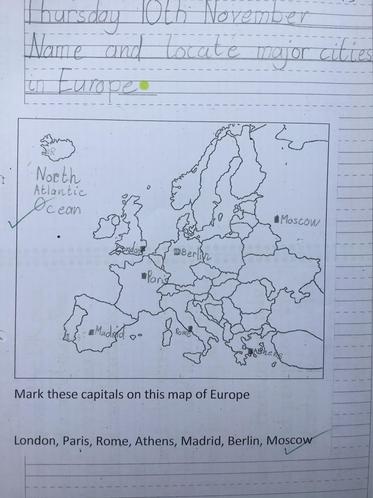 Thursday 10th November
Name and locate major cities
in Europe
North
Atlantic
Ocean
Moscow
London
Berlin
Paris
Madrid
Rome
Athens
Mark these capitals on this map of Europe
London, Paris, Rome, Athens, Madrid, Berlin, Moscow